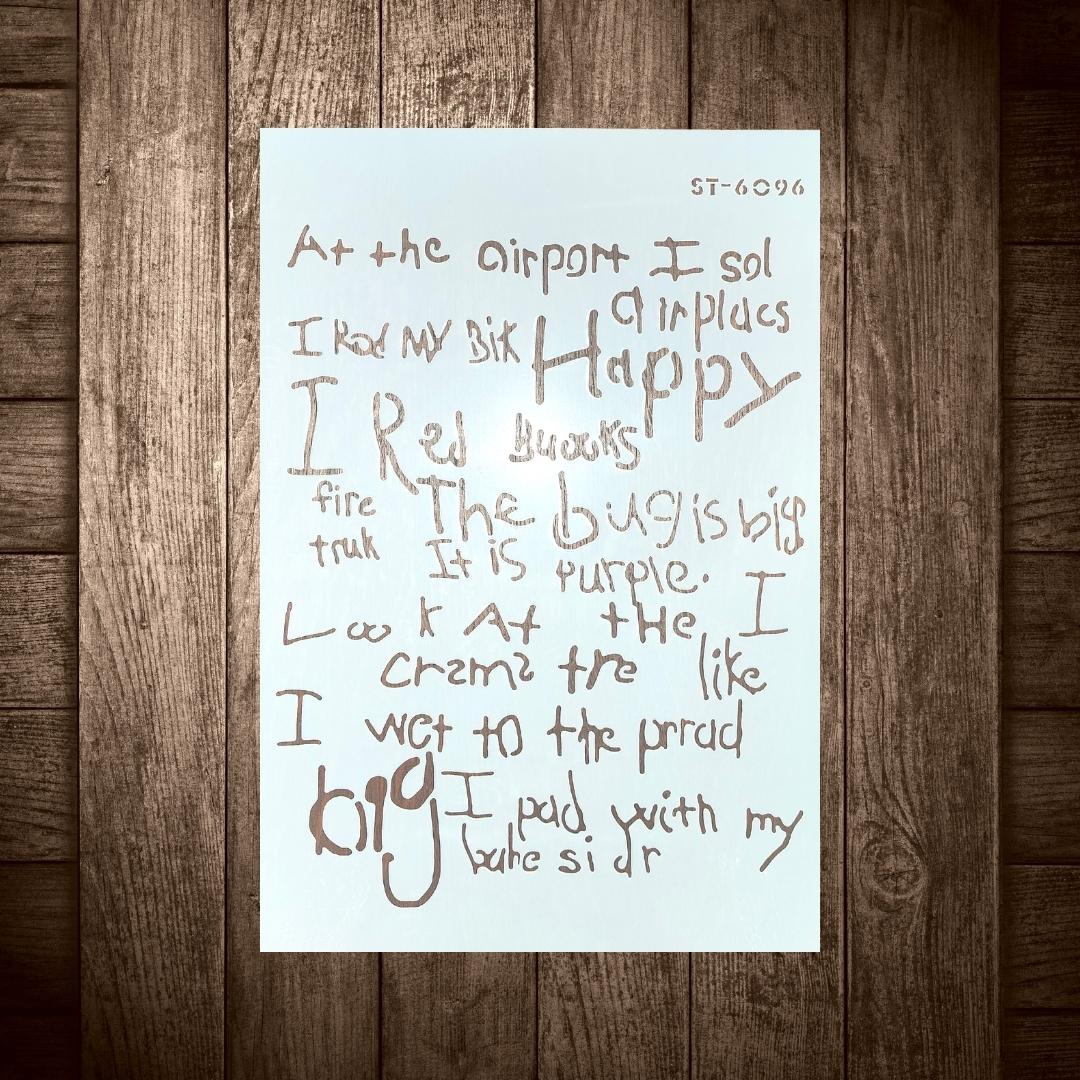 ST-6096
At the airport I sol
airplacs
I Rod MY Bik Happy
I Red Buooks
fire The bug is big
truk It is purple.
Look At tHe I
crama tre like
I wet to the prrad
big I pad with my
bahe si dr